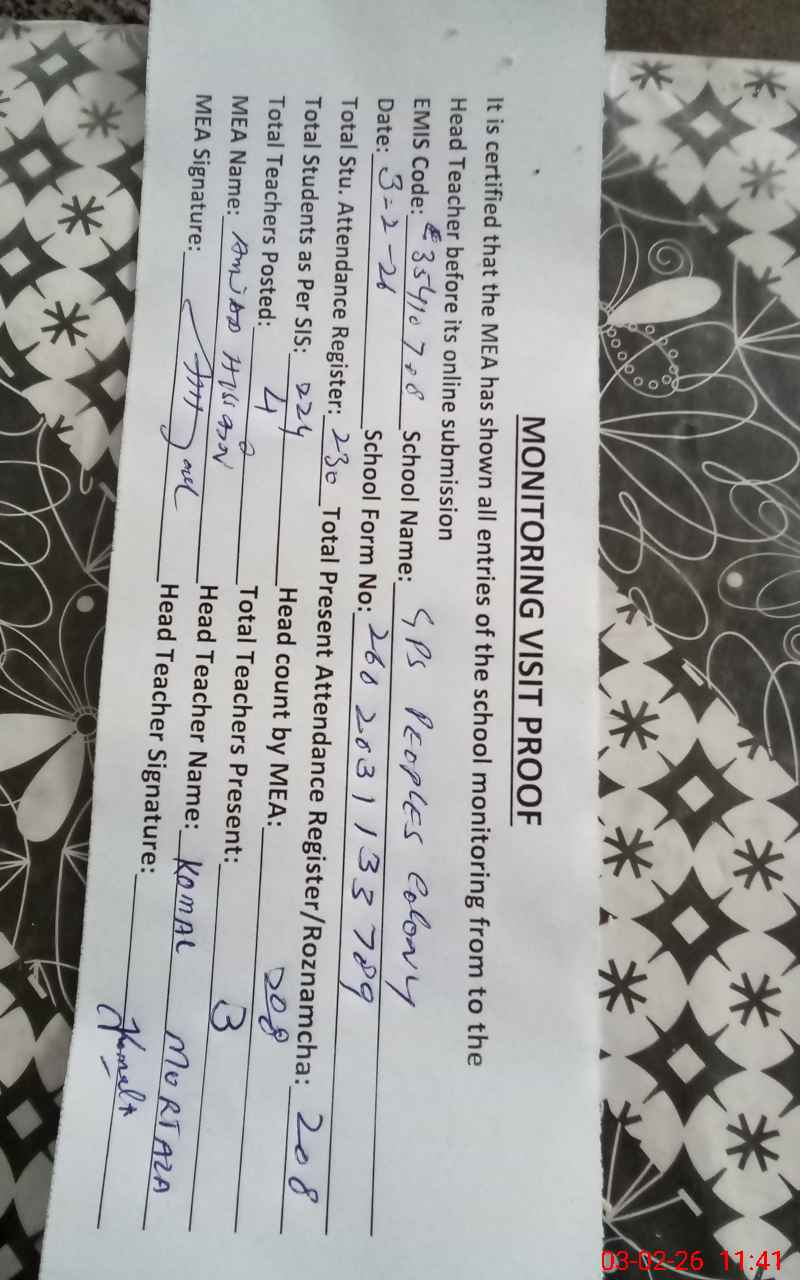 MONITORING VISIT PROOF
It is certified that the MEA has shown all entries of the school monitoring from to the
Head Teacher before its online submission
EMIS Code: 35410708 School Name: GPS PEOPLES COLONY
Date: 3-2-26 School Form No: 2602031133789
Total Stu. Attendance Register: 230 Total Present Attendance Register/Roznamcha: 208
Total Students as Per SIS: 224 Head count by MEA: 208
Total Teachers Posted: 4 Total Teachers Present: 3
MEA Name: AMJAD HUSSAIN Head Teacher Name: KOMAL MURTAZA
MEA Signature: Head Teacher Signature:
03-02-26 11:41